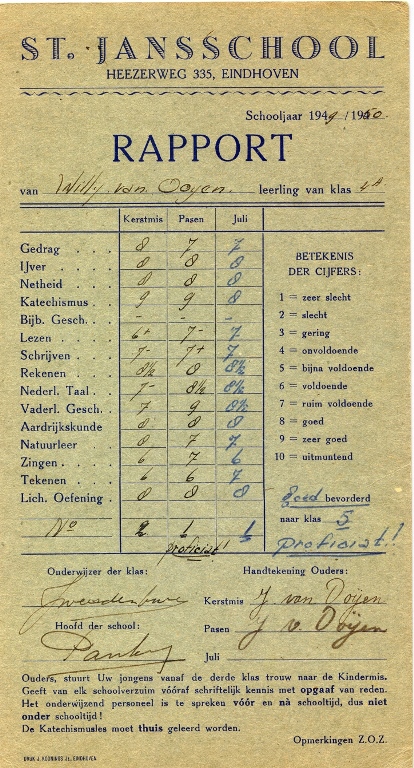 ST. JANSSCHOOL
HEEZERWEG 335, EINDHOVEN
Schooljaar 1949/1950
RAPPORT
van Willy van Ooyen. leerling van klas 4A
Kerstmis Pasen Juli
Gedrag . . . 8 7 7
IJver . . . . 8 8 8
Netheid . . . 8 8 8
Katechismus . . 9 9 8
Bijb. Gesch. . . - - -
Lezen . . . . 6+ 7- 7
Schrijven . . . 7- 7+ 7
Rekenen . . . 8½ 8 8½
Nederl. Taal . . 7- 8½ 8½
Vaderl. Gesch. . . 7 9 8½
Aardrijkskunde 8 8 8
Natuurleer . . 8 7 7
Zingen . . . . 6 7 6
Tekenen . . . 6 6 7
Lich. Oefening . 8 8 8
No 2 1 1
proficiat!
BETEKENIS
DER CIJFERS:
1 = zeer slecht
2 = slecht
3 = gering
4 = onvoldoende
5 = bijna voldoende
6 = voldoende
7 = ruim voldoende
8 = goed
9 = zeer goed
10 = uitmuntend
Goed bevorderd
naar klas 5
proficiat!
Onderwijzer der klas:
Hoofd der school:
Handtekening Ouders:
Kerstmis J van Ooijen
Pasen J v. Ooijen
Juli
Ouders, stuurt Uw jongens vanaf de derde klas trouw naar de Kindermis.
Geeft van elk schoolverzuim vóóraf schriftelijk kennis met opgaaf van reden.
Het onderwijzend personeel is te spreken vóór en nà schooltijd, dus niet
onder schooltijd!
De Katechismusles moet thuis geleerd worden.
Opmerkingen Z.O.Z.